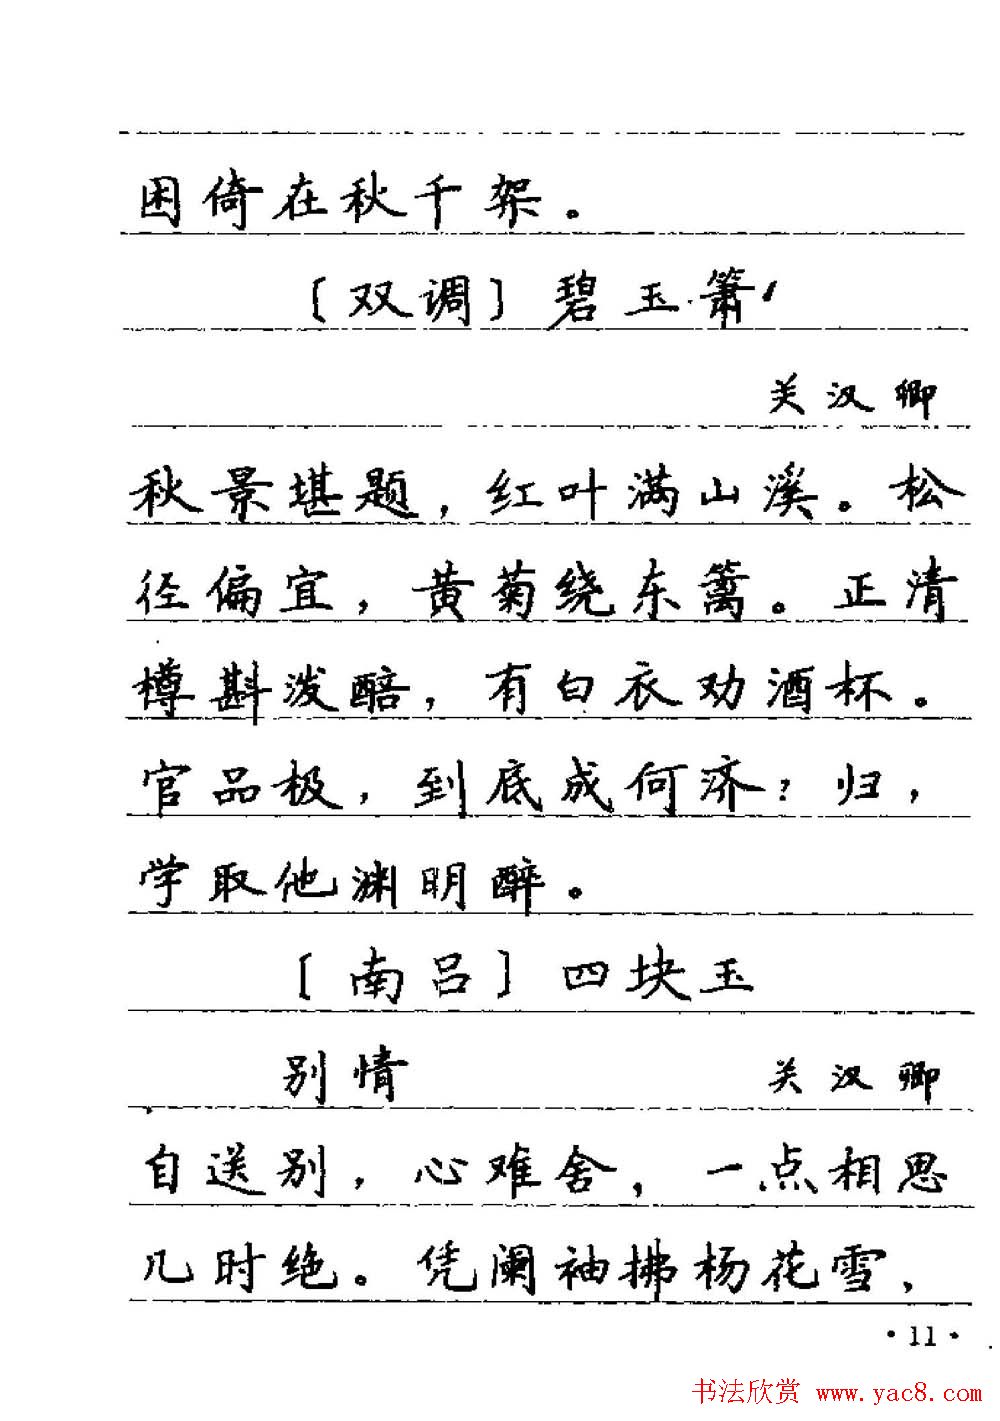 困倚在秋千架。
〔双调〕碧玉箫
关汉卿
秋景堪题，红叶满山溪。松
径偏宜，黄菊绕东篱。正清
樽斟泼醅，有白衣劝酒杯。
官品极，到底成何济？归，
学取他渊明醉。
〔南吕〕四块玉
别情 关汉卿
自送别，心难舍，一点相思
几时绝。凭阑袖拂杨花雪，
·11·
书法欣赏 www.yac8.com